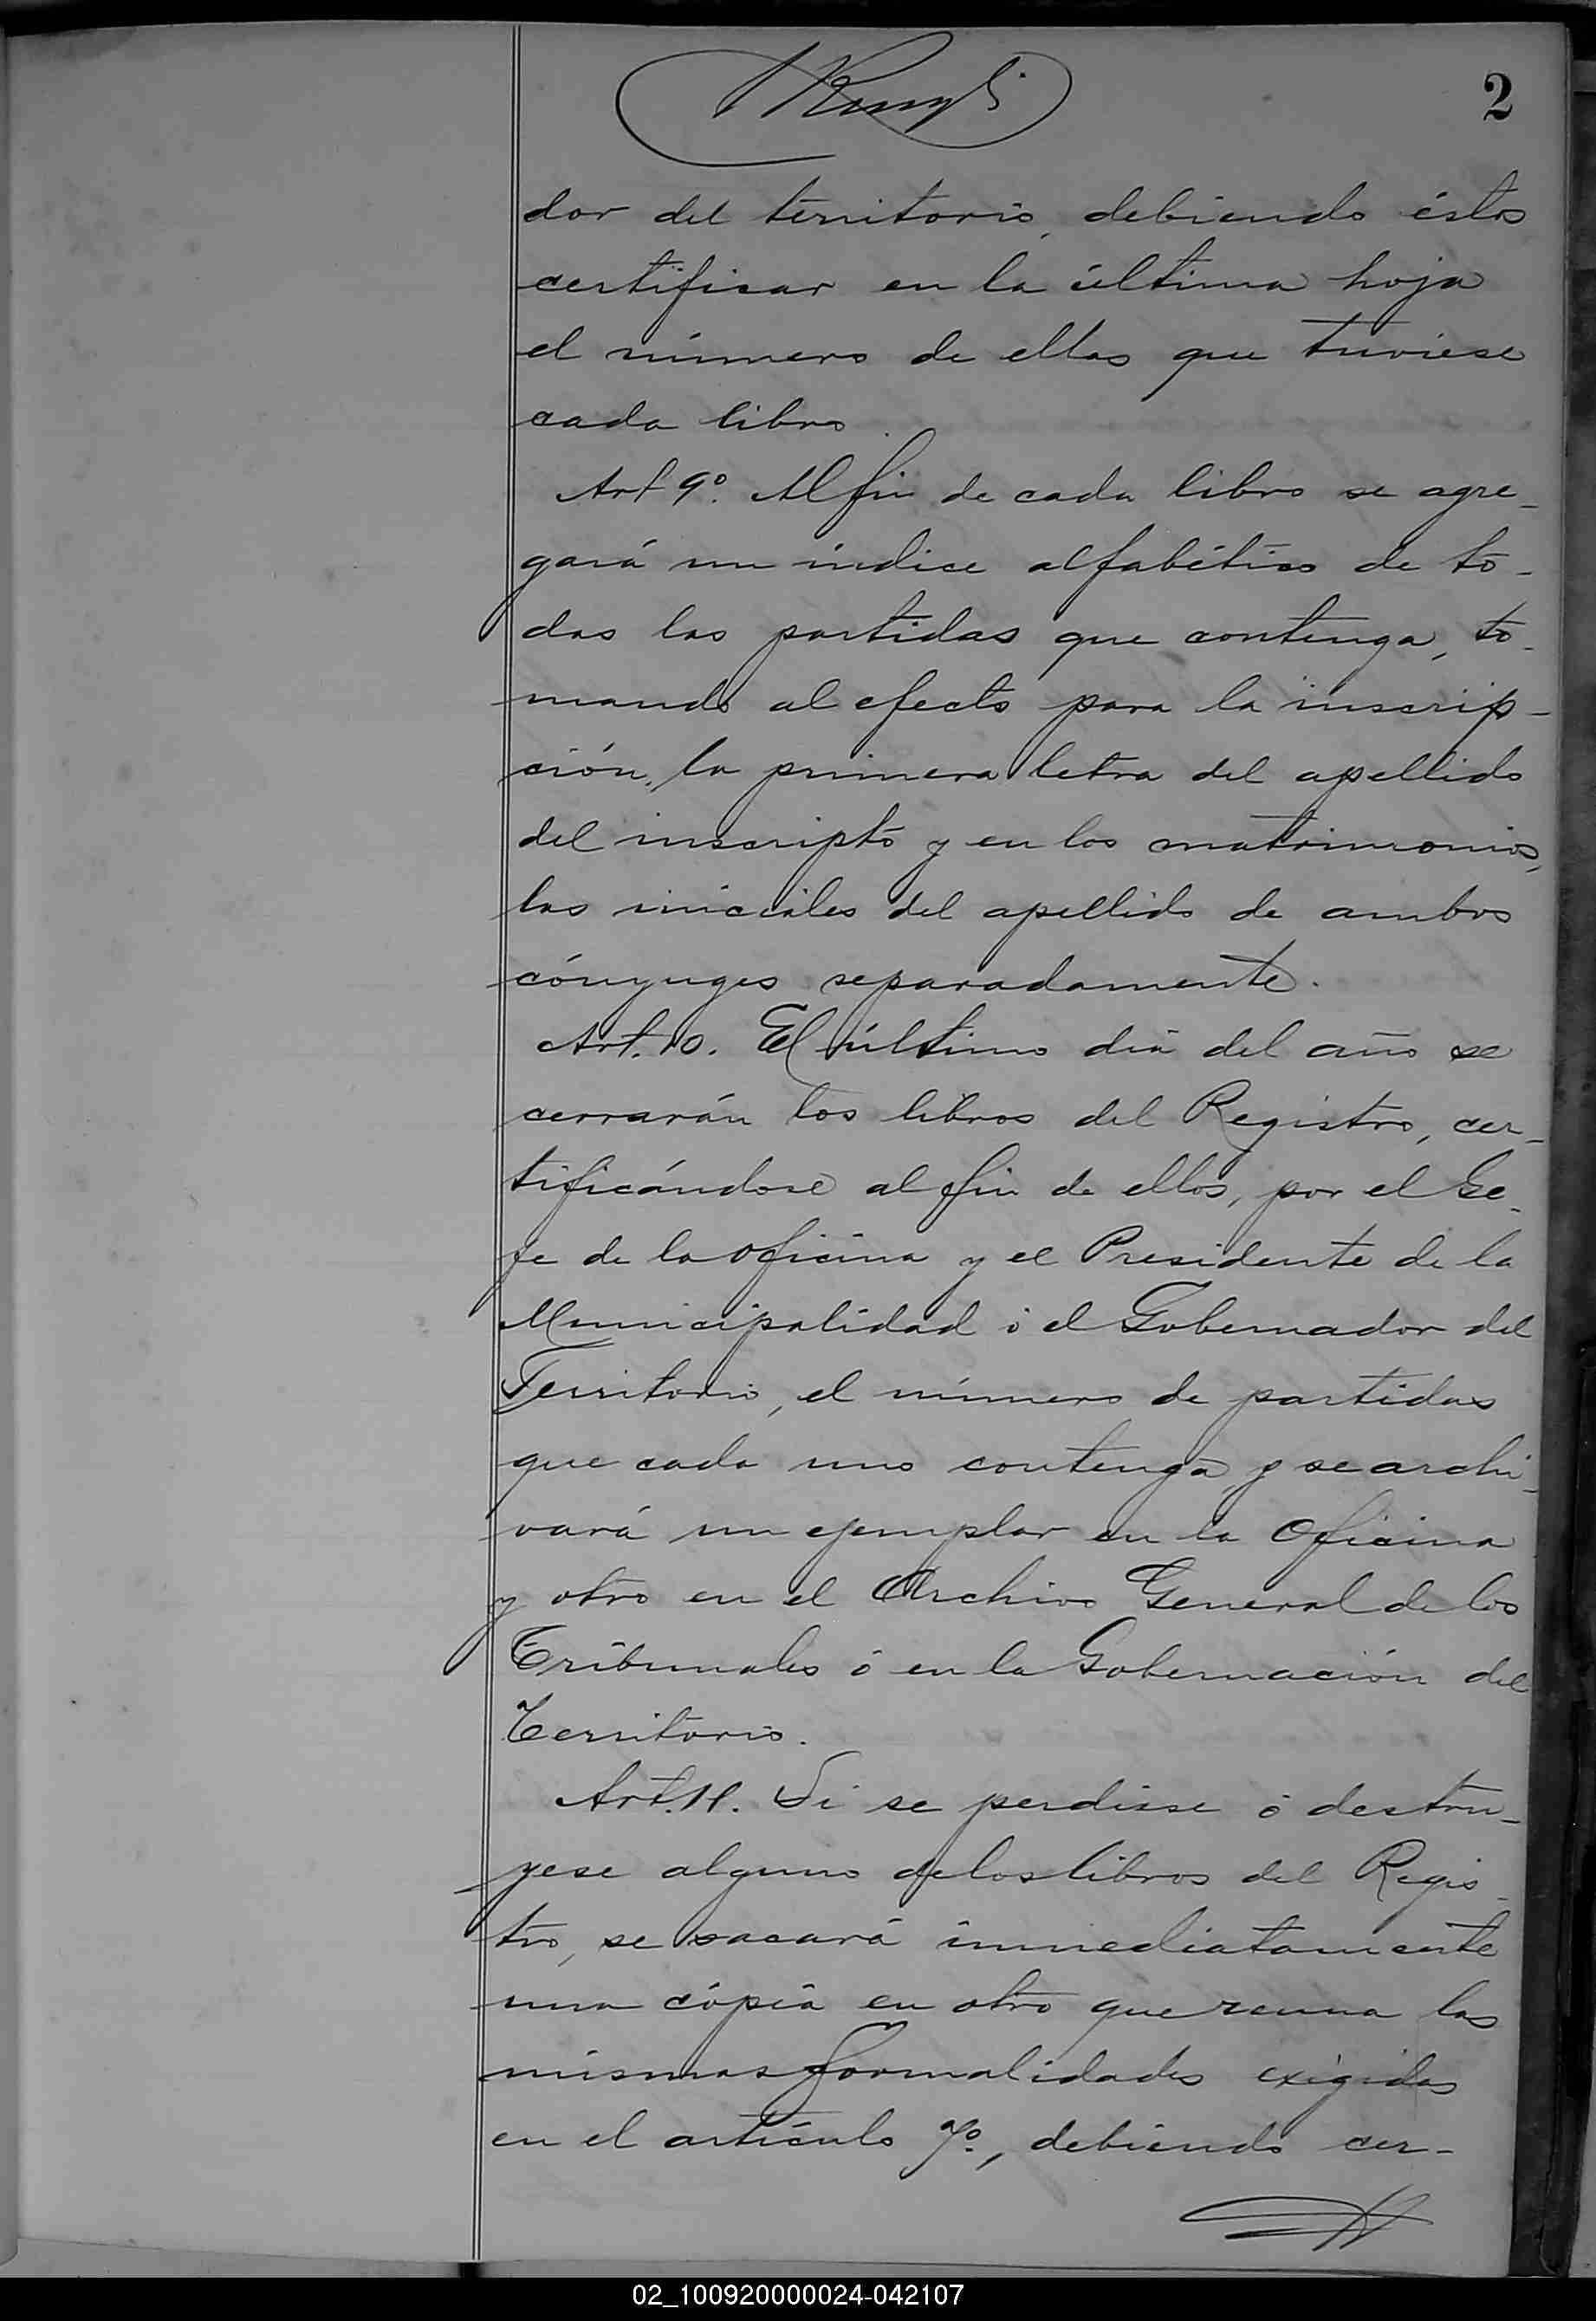 2
dor del territorio, debiendo éstos
certificar en la última hoja
el número de ellas que tuviese
cada libro.
Art 9º. Al fin de cada libro se agre-
gará un índice alfabético de to-
das las partidas que contenga, to-
mando al efecto para la inscrip-
ción, la primera letra del apellido
del inscripto y en los matrimonios,
las iniciales del apellido de ambos
cónyuges separadamente.
Art. 10. El último dia del año se
cerrarán los libros del Registro, cer-
tificándose al fin de ellos, por el Ge-
fe de la oficina y el Presidente de la
Municipalidad ó el Gobernador del
Territorio, el número de partidas
que cada uno contenga y se archi-
vará un ejemplar en la Oficina
y otro en el Archivo General de los
Tribunales ó en la Gobernación del
Territorio.
Art. 11. Si se perdiese ó destru-
yese alguno de los libros del Regis-
tro, se sacará inmediatamente
una cópia en otro que reuna las
mismas formalidades exigidas
en el artículo 7º., debiendo cer-
02_100920000024-042107